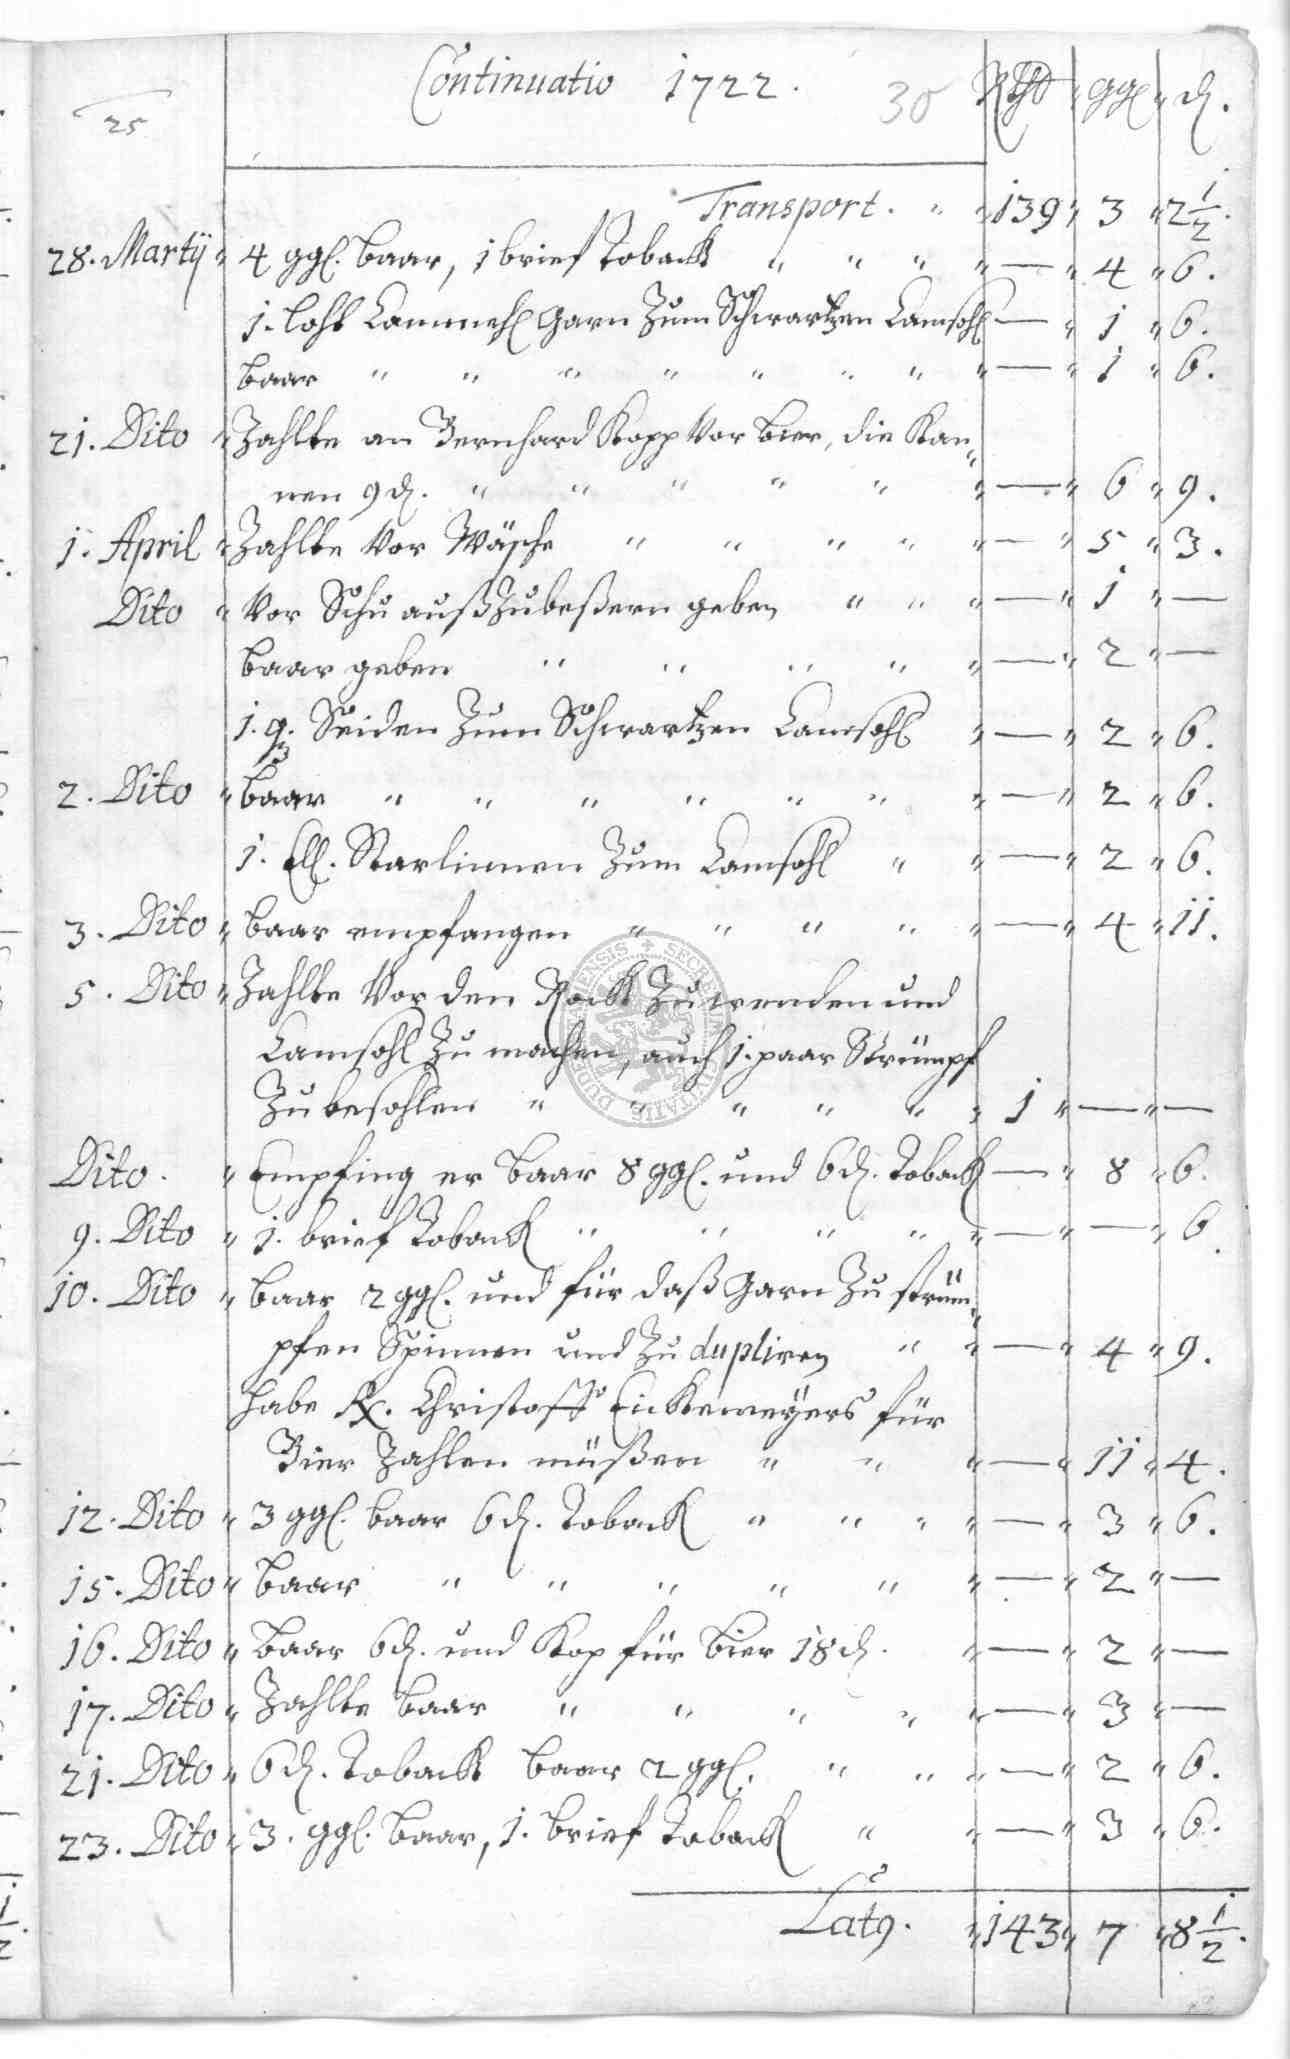 25
Continuatio 1722. 30 Rthl " ggl " d.
Transport. " " 139 " 3 " 2 1/2.
28. Martij " 4 ggl. baar, 1 brief Toback " " " " — " 4 " 6.
1. loht Cammehl Garn Zum Schwartzen Camsohl — " 1 " 6.
baar " " " " " " " " — " 1 " 6.
21. Dito " Zahlte an Bernhard Kopp Vor bier, die Kan
nen 9 d. " " " " " " — " 6 " 9.
1. April " Zahlte Vor Wäsche " " " " " — " 5 " 3.
Dito " Vor Schu außzubeßern geben " " " — " 1 " —
baar geben " " " " " — " 2 " —
1. q. Seiden Zum Schwartzen Camsohl " — " 2 " 6.
2. Dito " baar " " " " " " " — " 2 " 6.
1. Ell. Starlinnen Zum Camsohl " " — " 2 " 6.
3. Dito " baar empfangen " " " " " — " 4 " 11.
5. Dito " Zahlte Vor den Rock Zu wenden und
Camsohl Zu machen, auch 1. paar Strümpf
Zu besohlen " " " " " " 1 " — " —
Dito. " Empfing er baar 8 ggl. und 6 d. Toback — " 8 " 6.
9. Dito " 1. brief Toback " " " " " — " — " 6.
10. Dito " baar 2 ggl. und für daß Garn Zu strüm
pfen Spinnen und Zu dupliren " " — " 4 " 9.
habe Christoff Eickemeyers für
Bier Zahlen müßen " " " — " 11 " 4.
12. Dito " 3 ggl. baar 6 d. Toback " " " " — " 3 " 6.
15. Dito " baar " " " " " " — " 2 " —
16. Dito " baar 6 d. und Kop für bier 18 d. " — " 2 " —
17. Dito " Zahlte baar " " " " " — " 3 " —
21. Dito " 6 d. Toback baar 2 ggl. " " " — " 2 " 6.
23. Dito " 3. ggl. baar, 1. brief Toback " " — " 3 " 6.
Lat9. " 143 " 7 " 8 1/2.